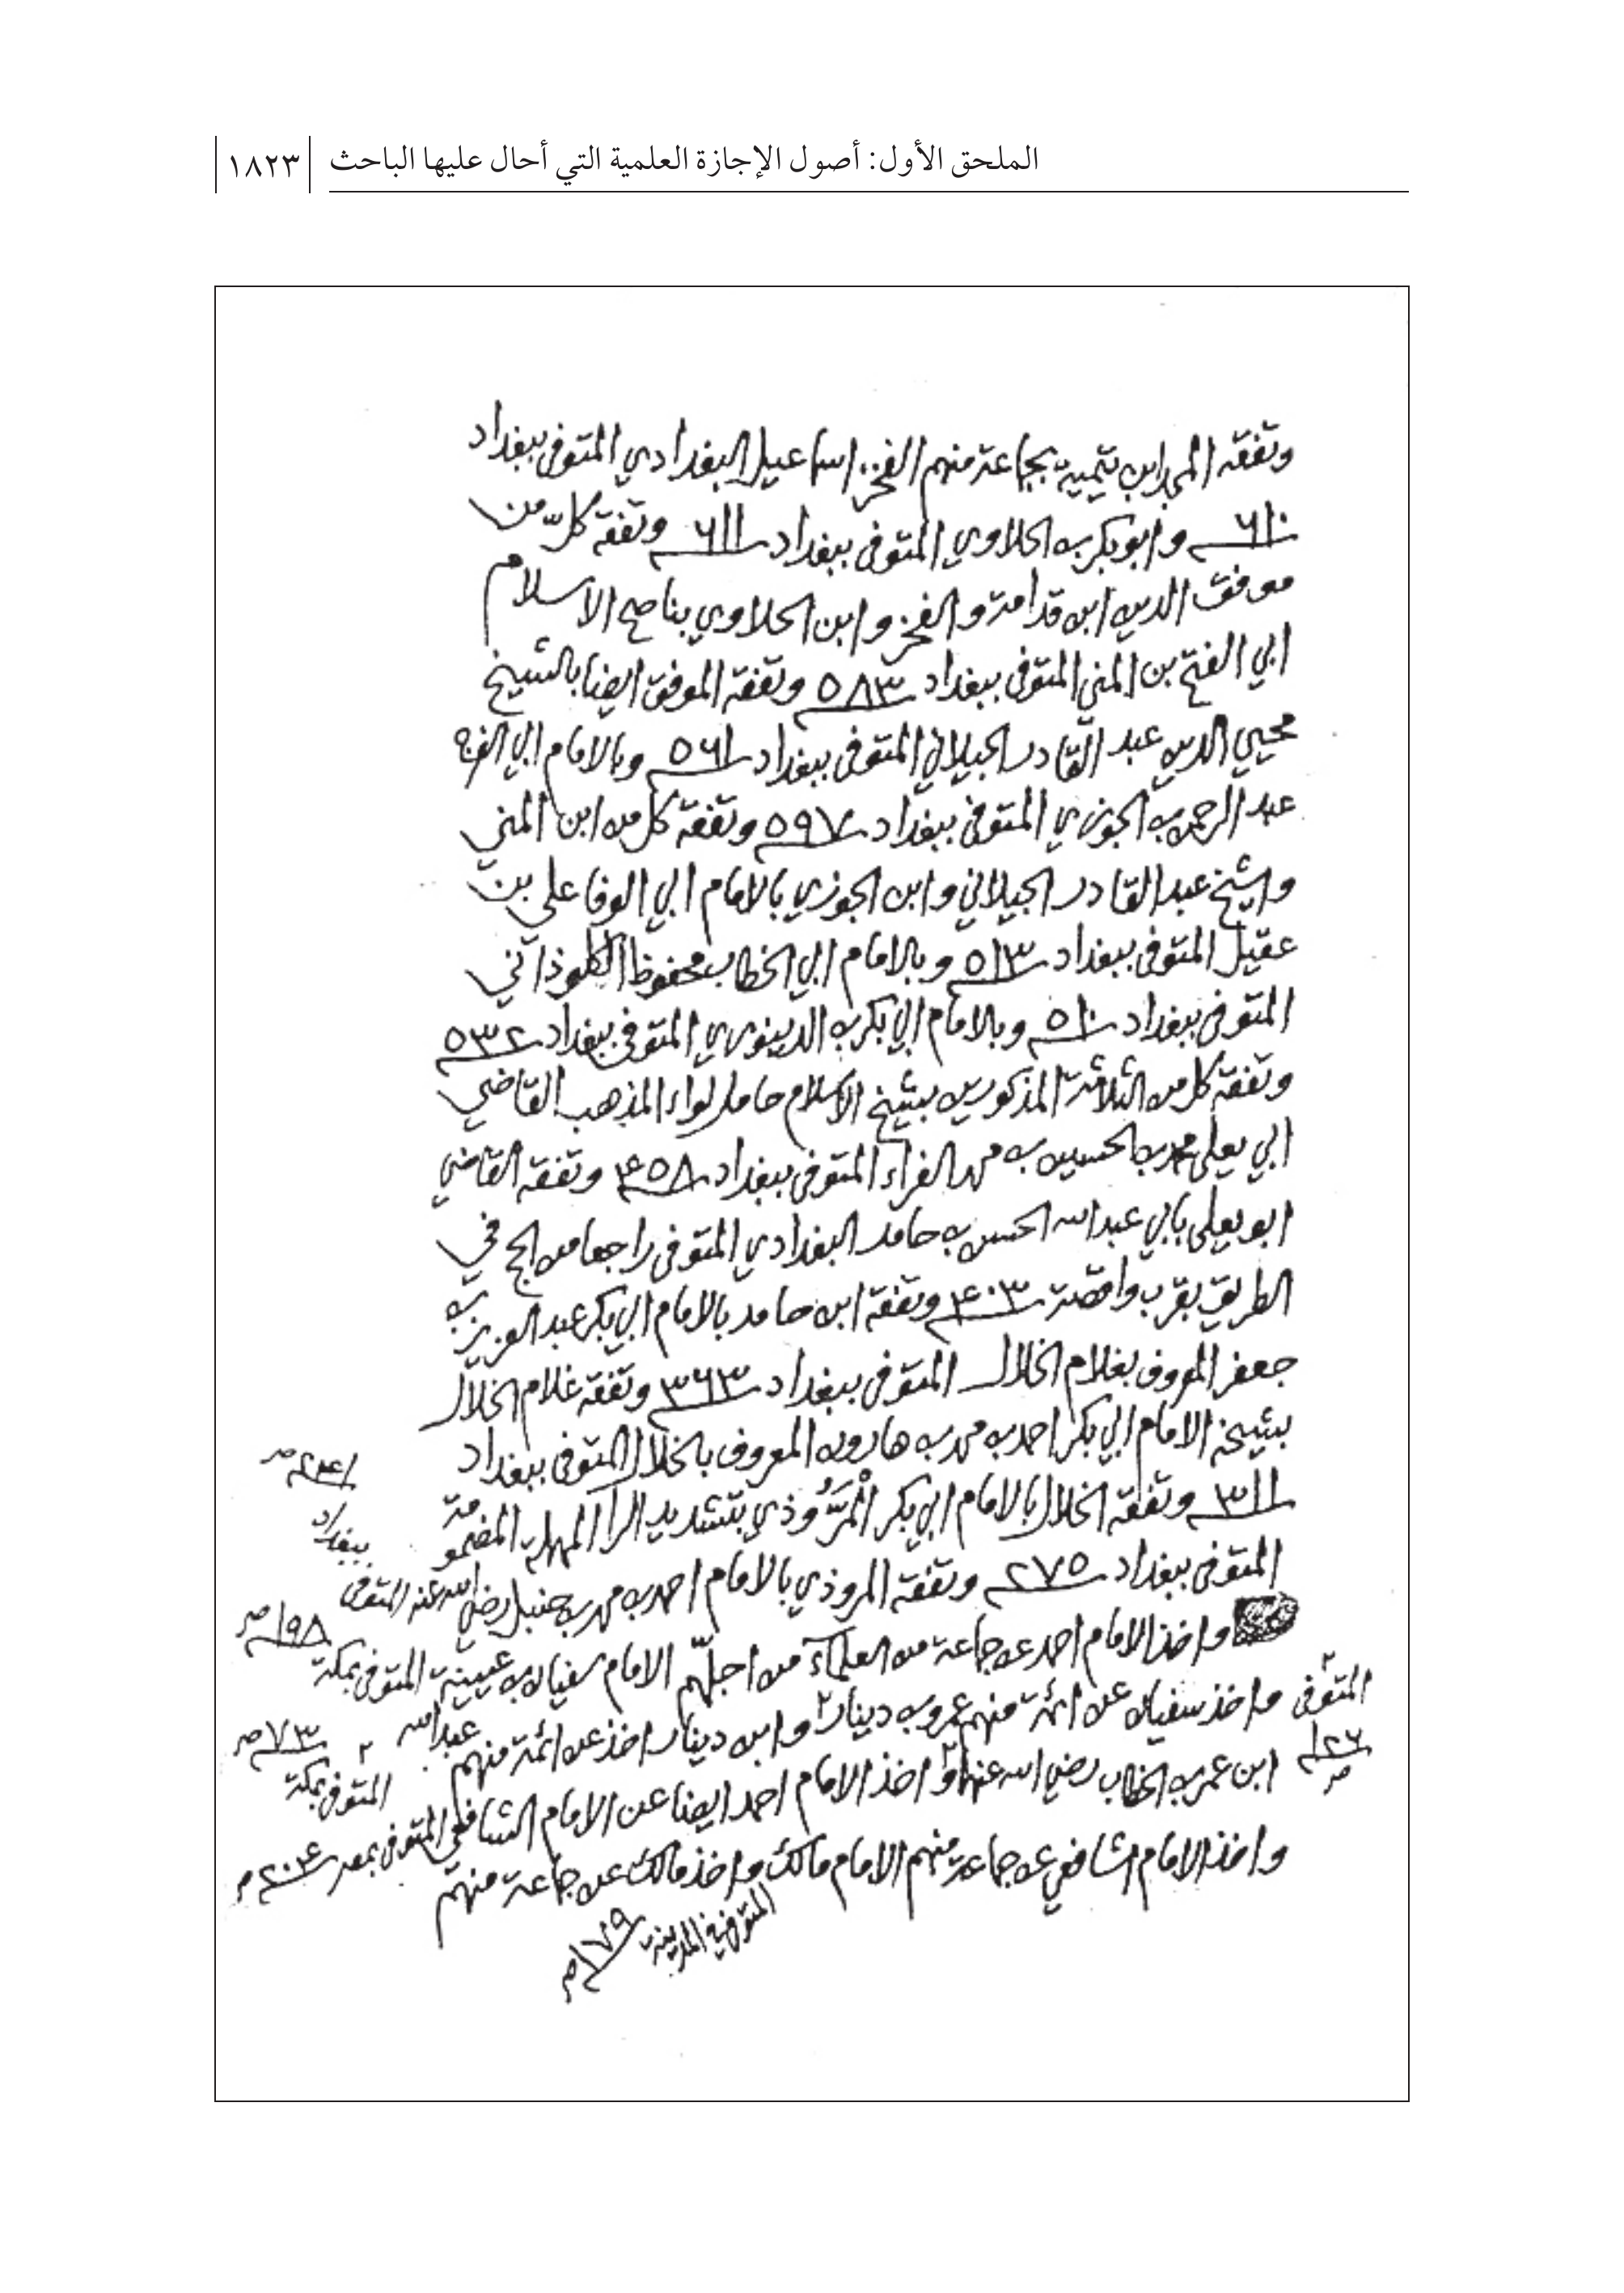 الملحق الأول: أصول الإجازة العلمية التي أحال عليها الباحث ١٨٢٣
وتفقه المجد ابن تيمية بجماعة منهم الفخر اسماعيل البغدادي المتوفى ببغداد
٦١٠ وابو بكر بن الحلاوي المتوفى ببغداد ٦١١ وتفقه كلّ من
موفق الدين ابن قدامة والفخر وابن الحلاوي بناصح الاسلام
ابي الفتح بن المني المتوفى ببغداد ٥٨٣ وتفقه الموفق ايضا بالشيخ
محيي الدين عبد القادر الجيلاني المتوفى ببغداد ٥٦١ وبالامام ابي الفرج
عبد الرحمن بن الجوزي المتوفى ببغداد ٥٩٧ وتفقه كل من ابن المني
والشيخ عبد القادر الجيلاني وابن الجوزي بالامام ابي الوفا علي بن
عقيل المتوفى ببغداد ٥١٣ وبالامام ابي الخطاب محفوظ الكلوذاني
المتوفى ببغداد ٥١٠ وبالامام ابي بكر بن الدينوري المتوفى ببغداد ٥٣٢
وتفقه كل من الثلاثة المذكورين بشيخ الاسلام حامل لواء المذهب القاضي
ابي يعلى محمد بن الحسين بن محمد الفراء المتوفى ببغداد ٤٥٨ وتفقه القاضي
ابو يعلى بابي عبد الله الحسن بن حامد البغدادي المتوفى راجعا من الحج في
الطريق بقرب واقصة ٤٠٣ وتفقه ابن حامد بالامام ابي بكر عبد العزيز بن
جعفر المعروف بغلام الخلال المتوفى ببغداد ٣٦٣ وتفقه غلام الخلال
بشيخه الامام ابي بكر احمد بن محمد بن هارون المعروف بالخلال المتوفى ببغداد
٣١١ وتفقه الخلال بالامام ابي بكر الْمَرُّوذي بتشديد الرا المهملة المضمومة
المتوفى ببغداد ٢٧٥ وتفقه المروذي بالامام احمد بن محمد بن حنبل رضي الله عنه المتوفى
ببغداد
٢٤١ هـ
واخذ الامام احمد عن جماعة من العلماء من اجلّهم الامام سفيان بن عيينة المتوفى بمكة
١٩٨ هـ
واخذ سفيان عن ائمة منهم عمرو بن دينار ٢ وابن دينار اخذ عن ائمة منهم عبد الله
٢ المتوفى
١٢٦
هـ
ابن عمر بن الخطاب رضي الله عنهما ٢ واخذ الامام احمد ايضا عن الامام الشافعي المتوفى بمصر ٢٠٤ هـ
٢ المتوفى بمكة
٧٣ هـ
واخذ الامام الشافعي عن جماعة منهم الامام مالك واخذ مالك عن جماعة منهم
المتوفى في المدينة
١٧٩ هـ